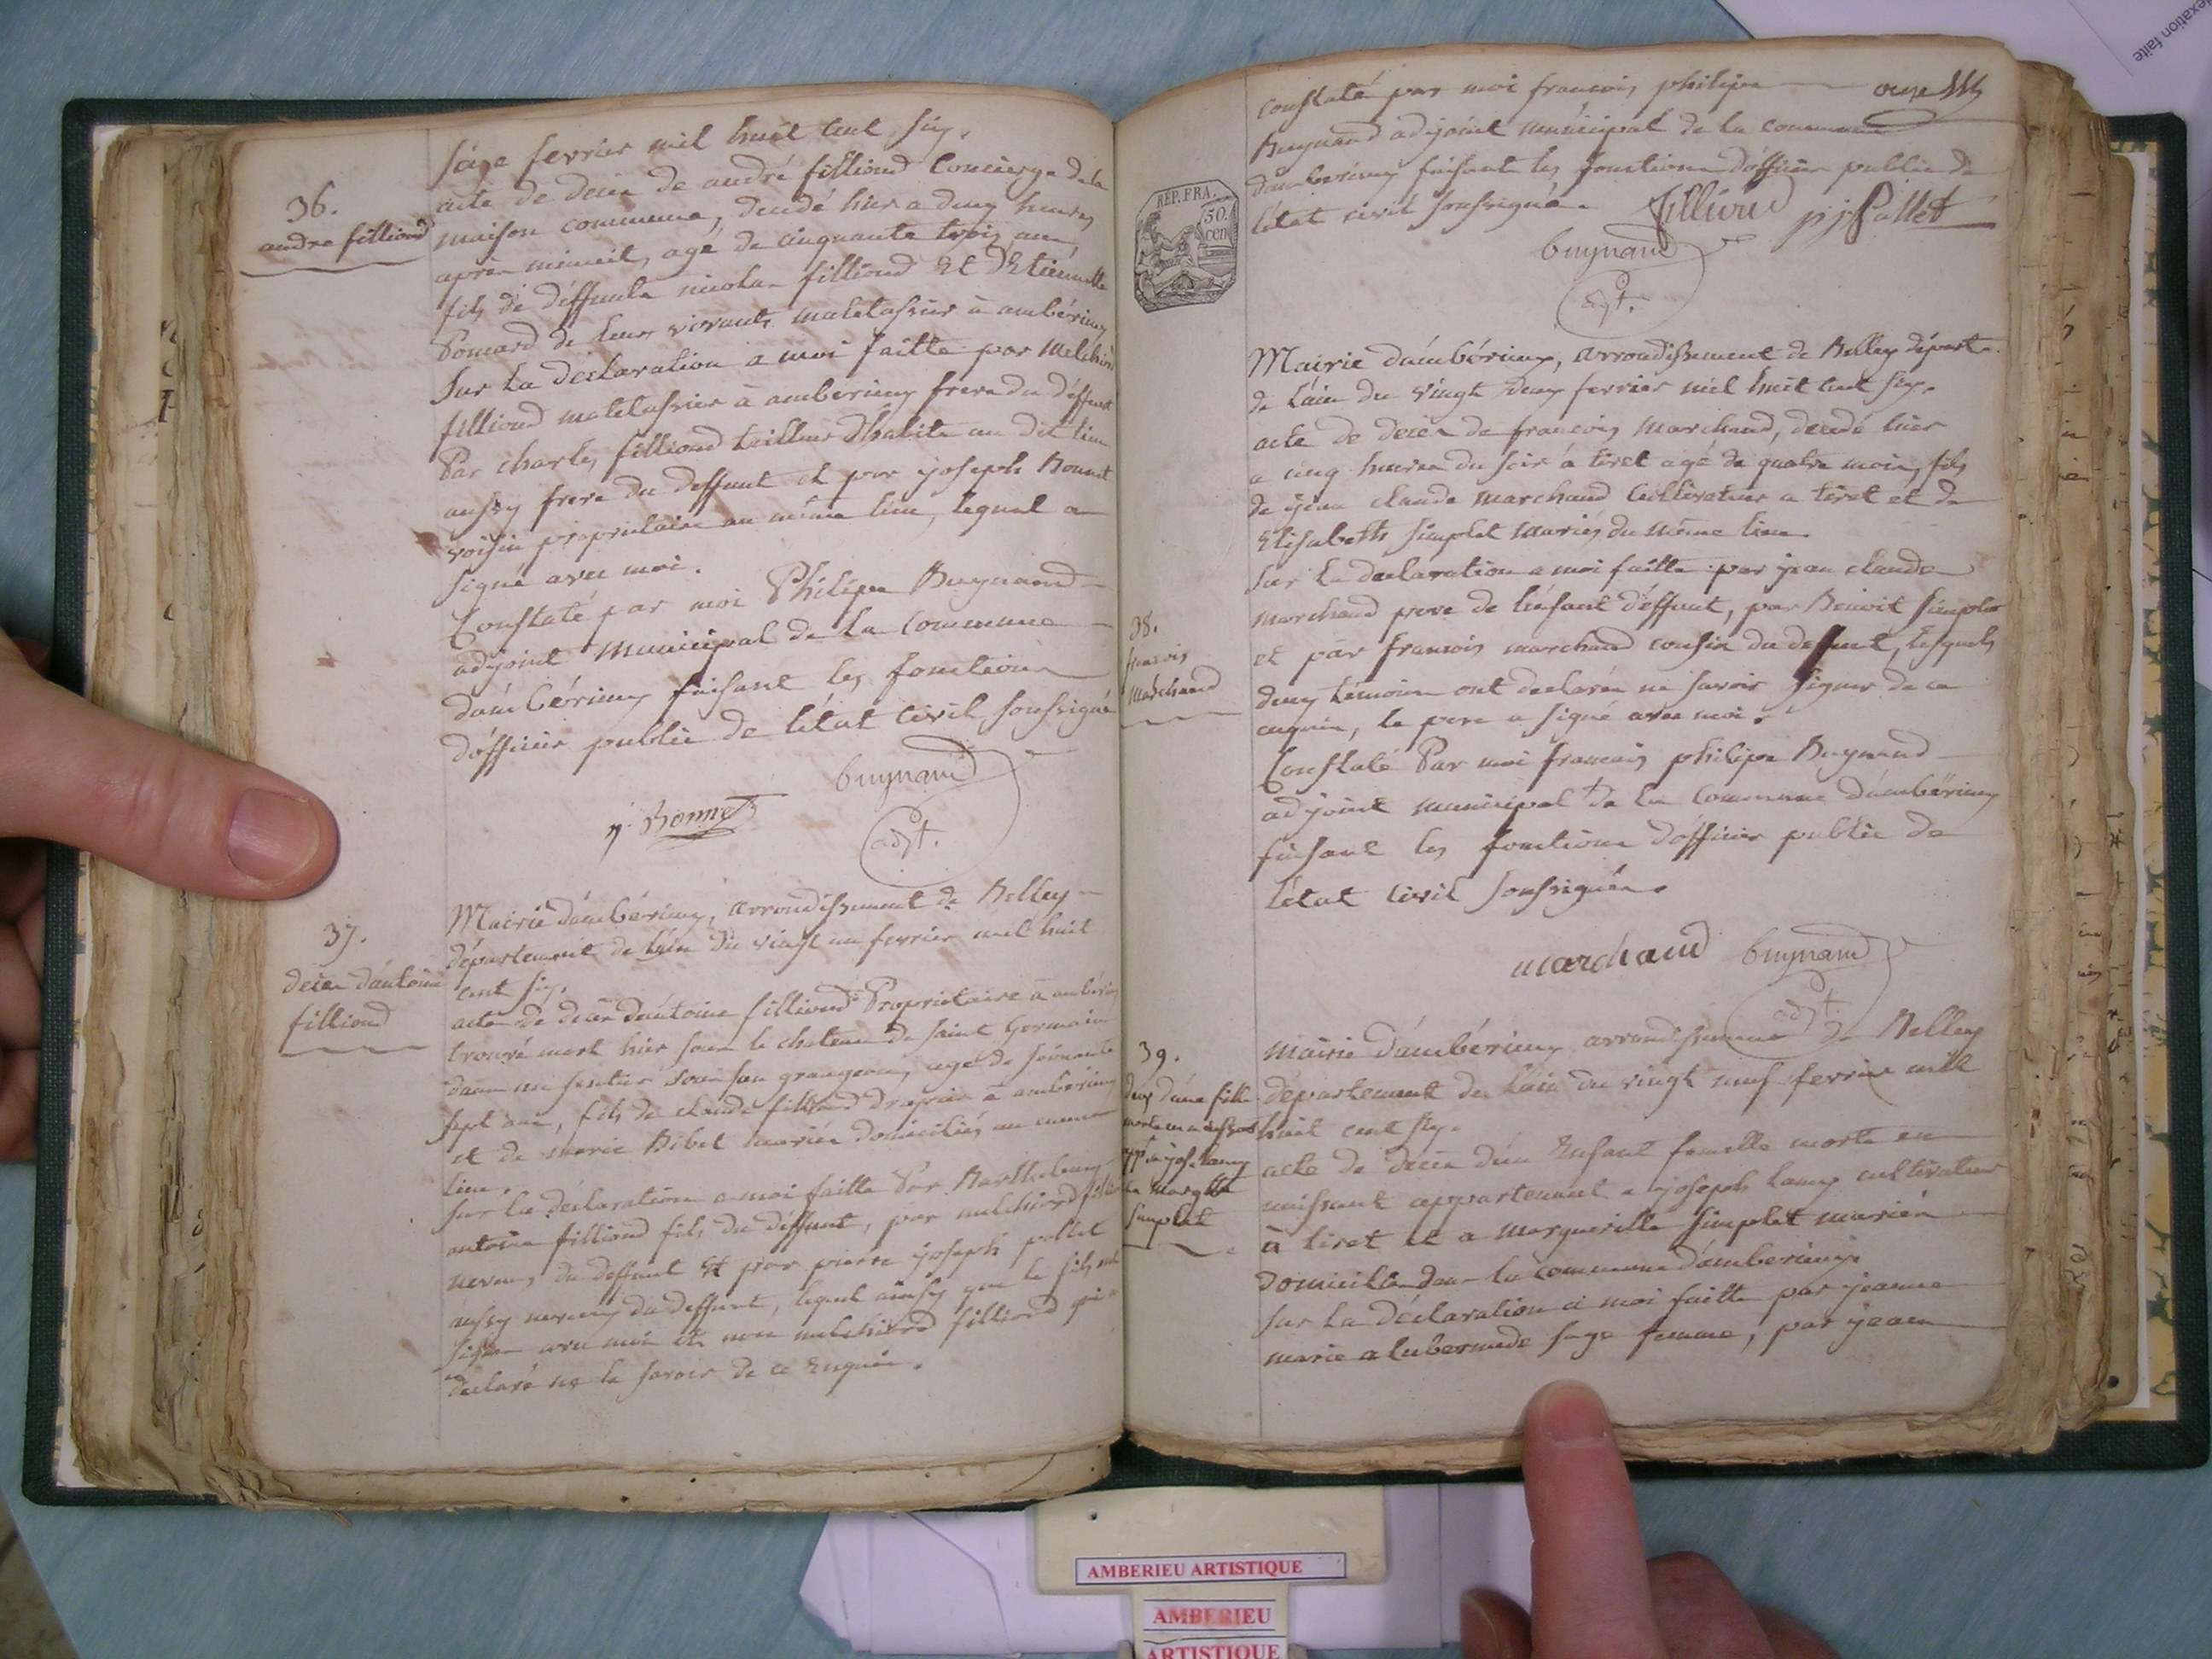 saize fevrier mil huit cent six.
36.
andre filliond
acte de decès de andré filliond Concierge de la
maison commune, decedé hier a deux heures
après minuit, agé de cinquante trois ans,
fils de deffunts nicolas filliond et d'Etiennette
Pomard de leurs vivants matelassier à ambérieux
Sur la déclaration a moi faitte par Melchior
filliond matelassier à amberieux frere du deffunt
Par charles filliond tailleur d'habits au dit lieu
aussy frere du deffunt et par joseph Bonnet
voisin proprietaire au même lieu, lequel a
signé avec moi.
Constaté par moi Philipe Buynand
adjoint municipal de la Commune
d'ambérieux faisant les fonctions
d'officier public de l'état civil soussigné
j. Bonnet
buynand
adjt.
37.
decès d'antoine
filliond
Mairie d'ambérieux, arrondissement de Belley
département de l'ain du vingt un fevrier mil huit
cent six.
acte de decès d'antoine filliond Proprietaire à ambérieux
trouvé mort hier sous le chateau de saint Germain
dans un sentier sous son grangeon, agé de soixante
sept ans, fils de claude filliond drapier à amberieux
et de marie Bibet mariés domiciliés au meme
lieu.
sur la déclaration a moi faitte Par Barthelemy
antoine filliond fils du deffunt, par melchiord filliond
neveux du deffunt et par pierre joseph pallet
aussy neveux du deffunt, lequel ainsy que le fils ont
signer avec moi et non melchiord filliond qui a
declaré ne le savoir de ce Enquis.
constaté par moi francois philipe
onze
Buynand adjoint municipal de la commune
d'amberieux faisant les fonctions d'officier public de
l'état civil soussigné.
REP. FRA.
50
cen
fillioud
pj Pallet
buynand
adjt.
Mairie d'ambérieux, arrondissement de Belley départt.
de l'ain du vingt deux fevrier mil huit cent six.
acte de decès de francois marchand, decedé hier
a cinq heures du soir à tiret agé de quatre mois, fils
de jean claude marchand cultivateur a tiret et de
Elisabeth simplet mariés du même lieu.
sur la declaration a moi faitte par jean claude
marchand pere de l'enfant deffunt, par Benoit simplet
38.
francois
marchand
et par francois marchand cousin du deffunt, lesquels
deux témoins ont declarés ne savoir signer de ce
enquis, le pere a signé avec moi.
Constaté Par moi francois philipe Buynand
adjoint municipal de la Commune d'ambérieux
faisant les fonctions d'officier public de
l'état civil soussignés.
marchand
buynand
adjt.
39.
mairie d'ambérieux arrondissement de Belley
département de l'ain du vingt neuf fevrier mille
huit cent six.
d'une fille
morte en naissant
app. a jos. lamy
et a margtte
simplet
acte de decès d'un Enfant femelle morte en
naissant appartenant a joseph lamy cultivateur
à tiret et a margueritte simplet mariés
domiciliés dans la commune d'amberieux.
sur la déclaration a moi faitte par jeanne
marie a lubermede sage femme, par jean
AMBERIEU ARTISTIQUE
AMBERIEU
ARTISTIQUE